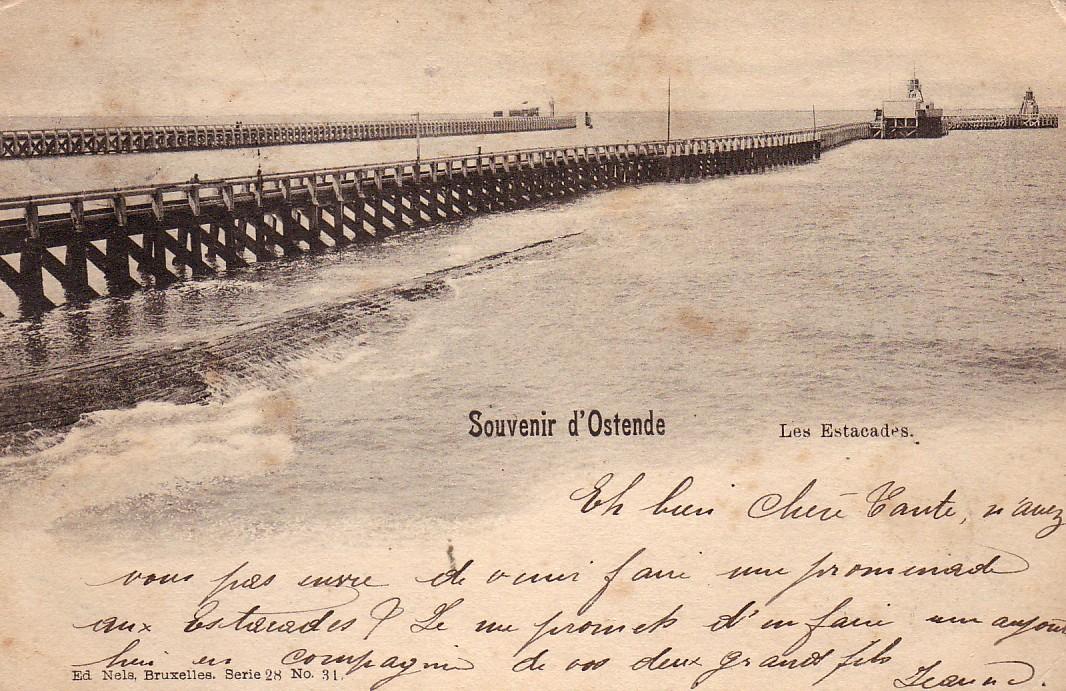 Souvenir d'Ostende
Les Estacades.
Eh bien Chère Tante, n'avez
vous pas envie de venir faire une promenade
aux Estacades? Je me promets d'en faire une aujour
hui en compagnie de vos deux grands fils
Jeanne.
Ed Nels, Bruxelles. Serie 28 No. 31.